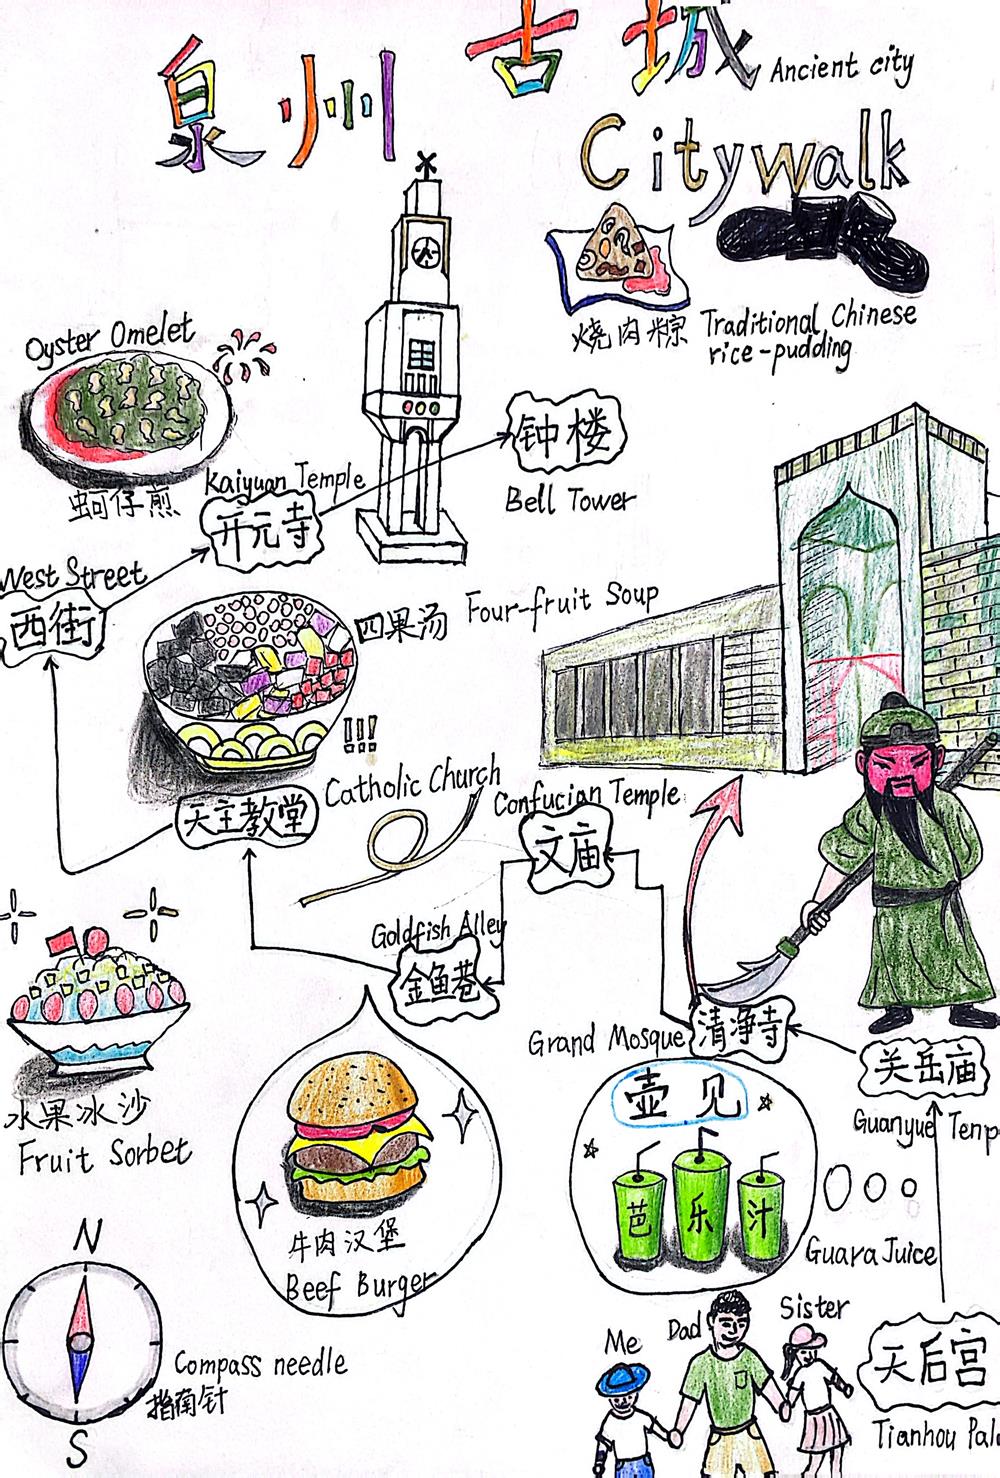 泉州古城
Ancient city
Citywalk
烧肉粽
Traditional Chinese
rice-pudding
Oyster Omelet
蚵仔煎
Kaiyuan Temple
开元寺
钟楼
Bell Tower
West Street
西街
四果汤
Four-fruit Soup
!!!
Catholic Church
天主教堂
Confucian Temple
文庙
Goldfish Alley
金鱼巷
Grand Mosque
清净寺
关岳庙
Guanyue Temp
水果冰沙
Fruit Sorbet
牛肉汉堡
Beef Burger
壶见
芭乐汁
Guara Juice
N
S
Compass needle
指南针
Me
Dad
Sister
天后宫
Tianhou Pala